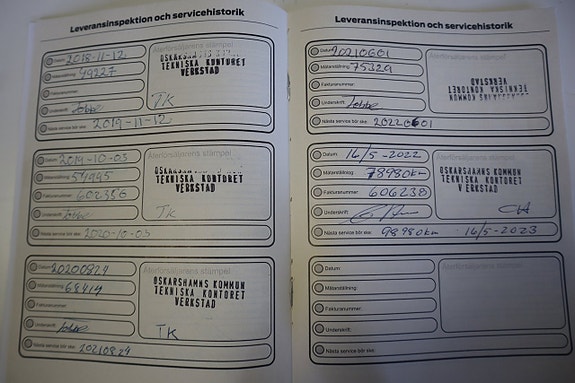 Leveransinspektion och servicehistorik
Datum: 2018-11-12
Mätarställning: 49227
Fakturanummer:
Underskrift:
Nästa service bör ske: 2019-11-12
Återförsäljarens stämpel
OSKARSHAMNS KOMMUN
TEKNISKA KONTORET
VERKSTAD
TK
Datum: 2019-10-03
Mätarställning:
Fakturanummer: 602356
Underskrift:
Nästa service bör ske: 2020-10-03
Återförsäljarens stämpel
TEKNISKA KONTORET
VERKSTAD
TK
Datum: 20200827
Mätarställning: 68414
Fakturanummer:
Underskrift:
Nästa service bör ske: 20210827
Återförsäljarens stämpel
OSKARSHAMNS KOMMUN
TEKNISKA KONTORET
VERKSTAD
TK
Leveransinspektion och servicehistorik
Datum: 20210601
Mätarställning: 75329
Fakturanummer:
Underskrift:
Nästa service bör ske: 20220601
Återförsäljarens stämpel
KOMMUN
TEKNISKA KONTORET
VERKSTAD
Datum: 16/5-2022
Mätarställning: 78980km
Fakturanummer: 606238
Underskrift:
Nästa service bör ske: 98980km 16/5-2023
Återförsäljarens stämpel
OSKARSHAMNS KOMMUN
TEKNISKA KONTORET
VERKSTAD
CH
Datum:
Mätarställning:
Fakturanummer:
Underskrift:
Nästa service bör ske:
Återförsäljarens stämpel